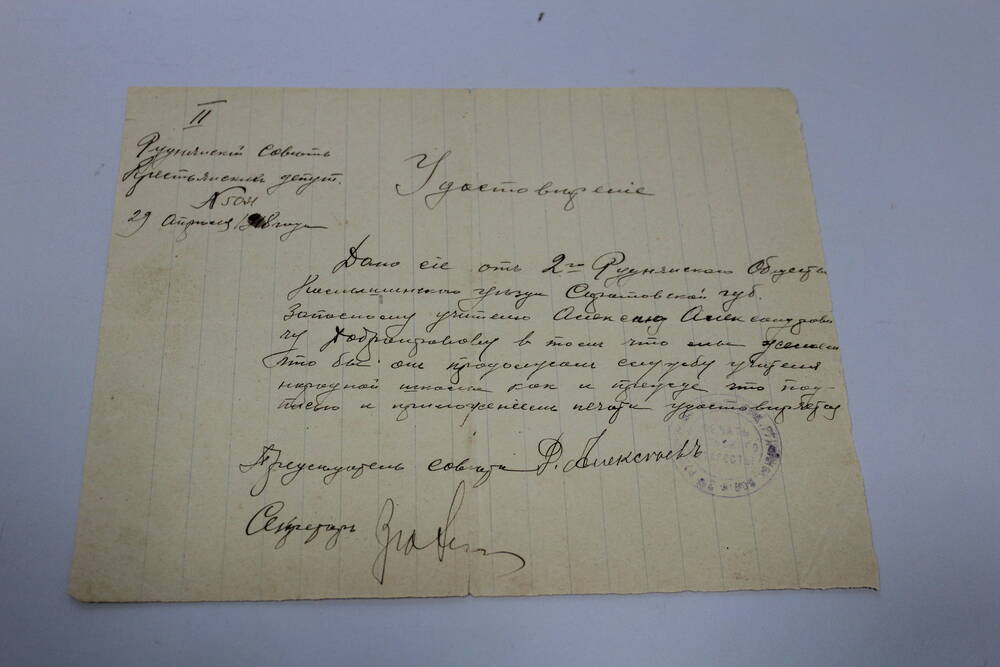 II
Руднянскій Совѣтъ
Крестьянскихъ депут.
29 Апрѣля 1918 года
Удостовѣреніе
Дано сіе отъ 2го Руднянского Общества
Камышинского уѣзда Саратовской губ.
Запасному учителю Александ Александрови
чу в томъ что мы желаем
что бы он продолжал службу учителя
народной школы как и прежде что под-
писью и приложеніемъ печати удостовѣряется
Предсѣдатель совѣта Алексѣевъ
Секретарь